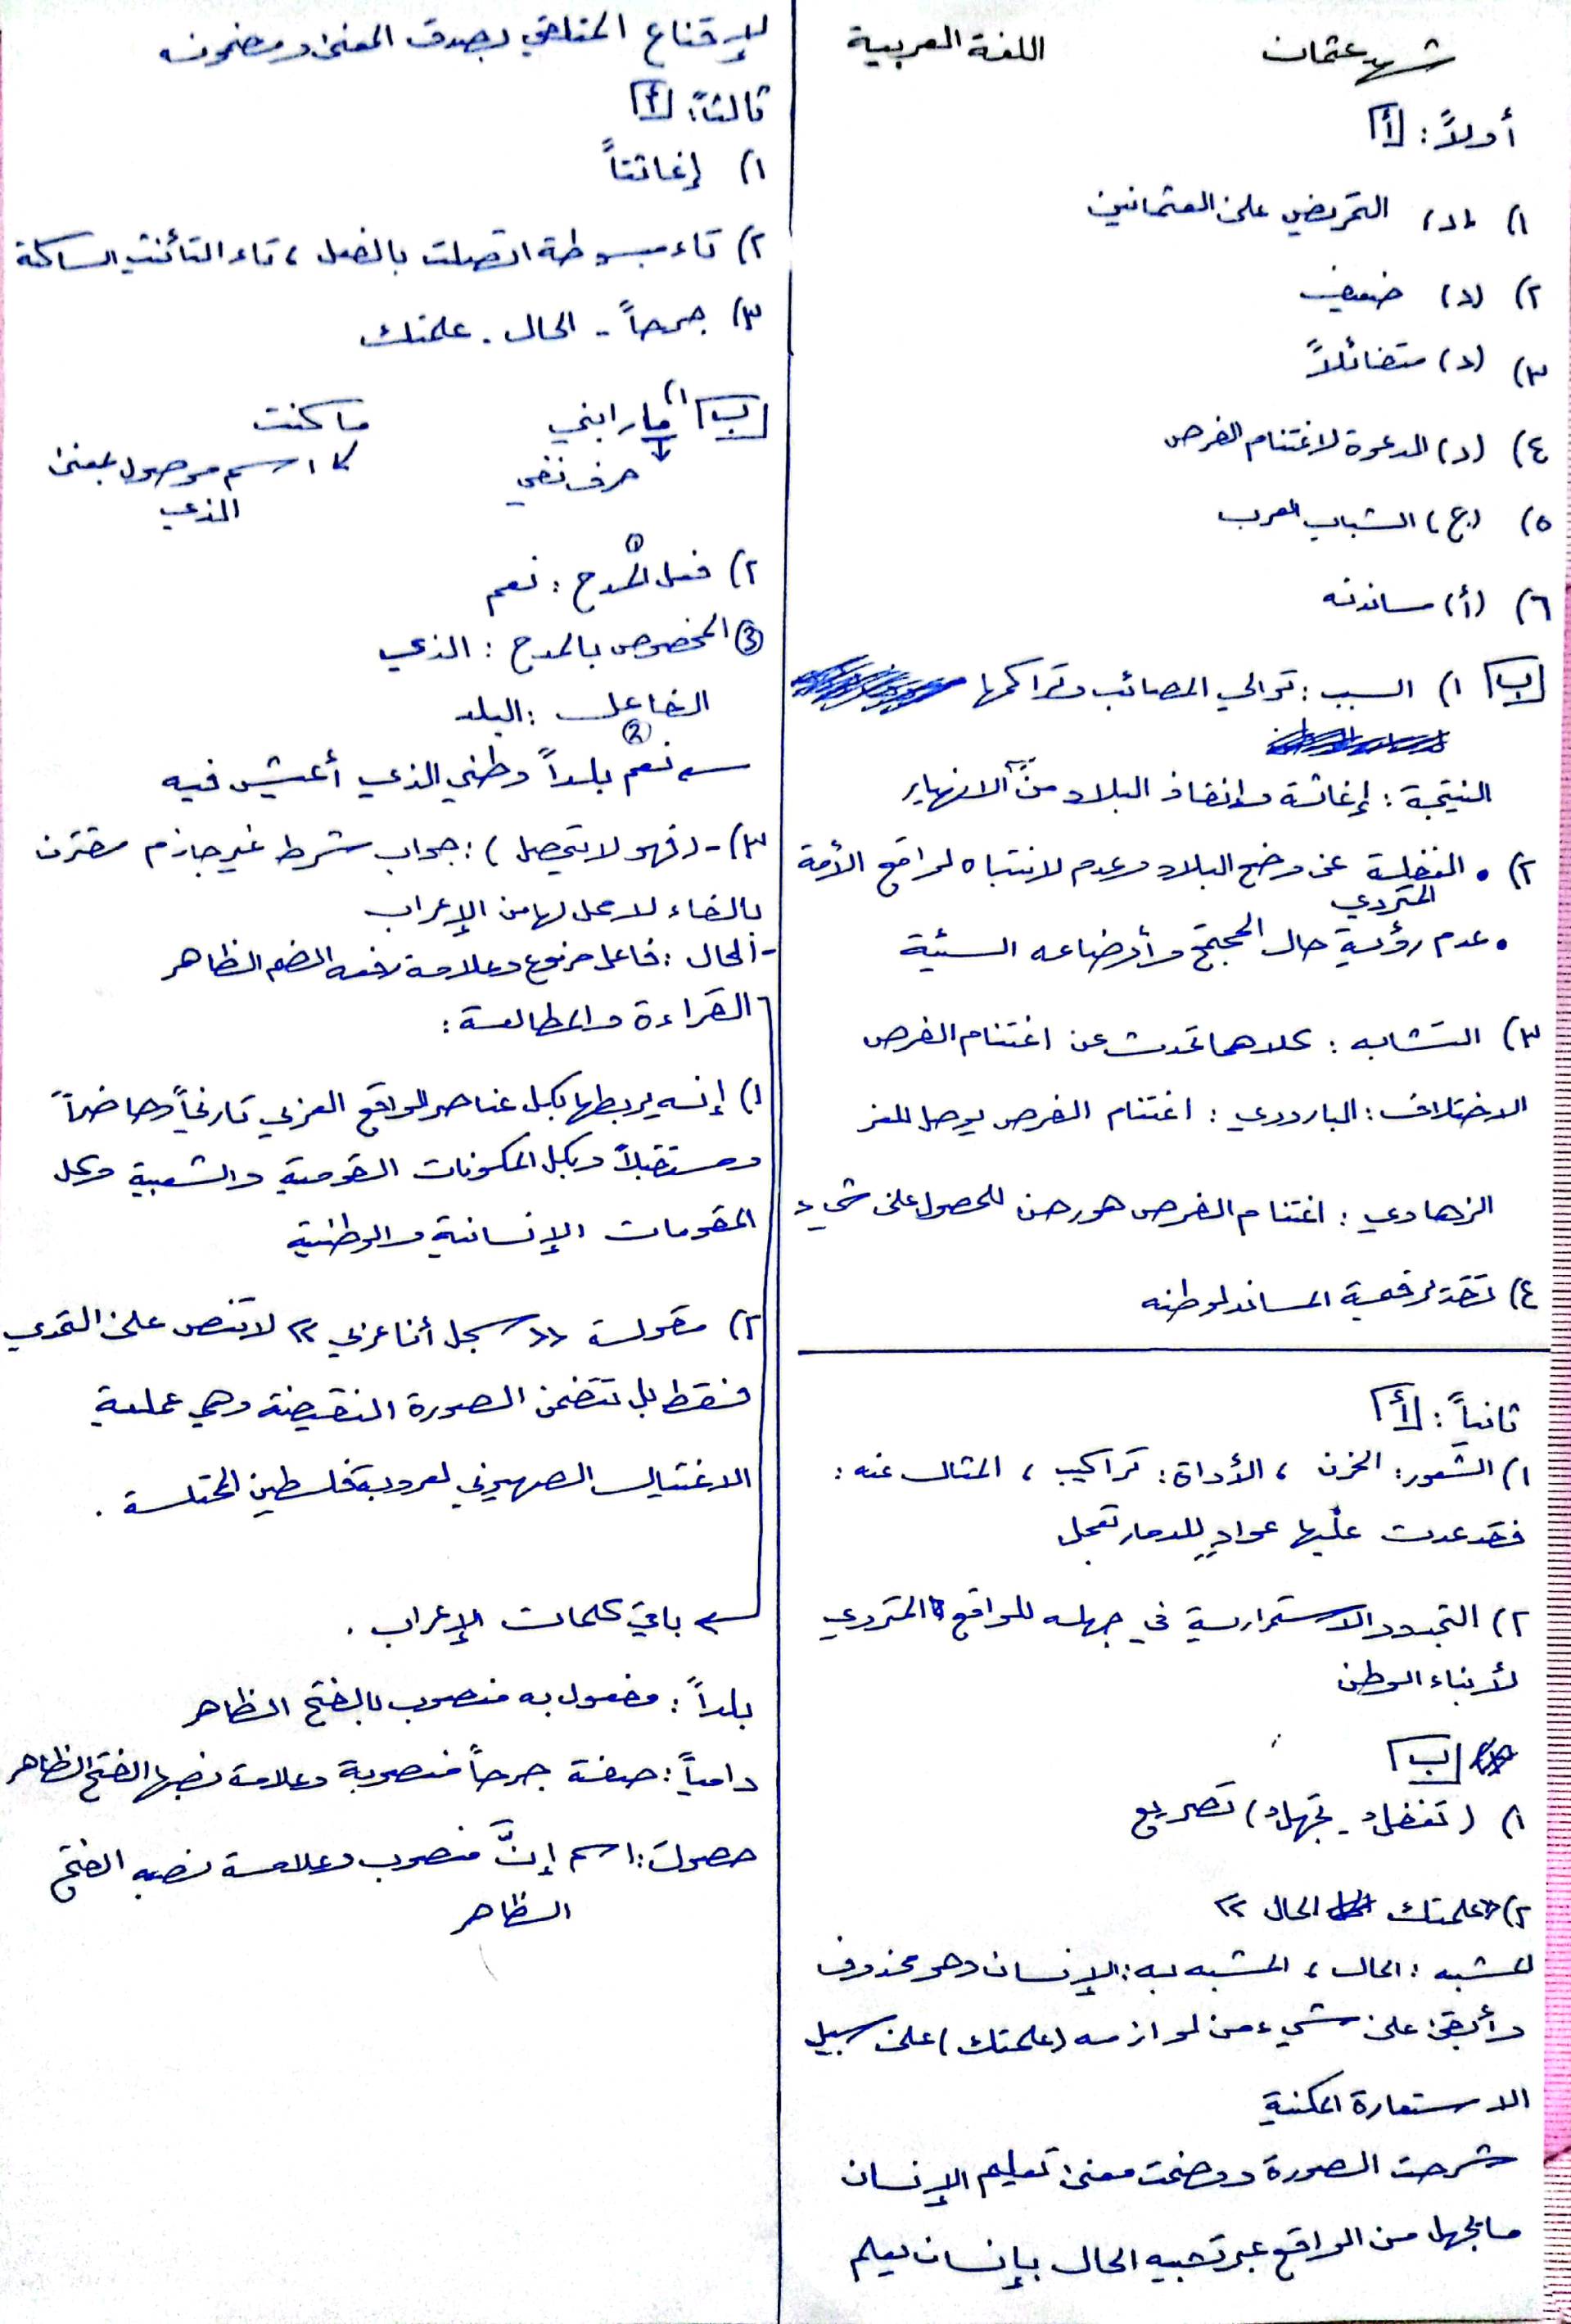 شهد عثمان
اللغة العربية
أولاً: أ
١) (د) التحريض على العثمانيين
٢) (د) ضعيف
٣) (د) متفائلاً
٤) (د) الدعوة لاغتنام الفرص
٥) (ج) الشباب العرب
٦) (أ) مساندته
ب ١) السبب: توالي المصائب وتراكمها
النتيجة: إغاثة وانقاذ البلاد من الانهيار
٢) • الغفلة عن وضع البلاد وعدم لانتباه لواقع الأمة
المتردي
• عدم رؤية حال المجتمع وأوضاعه السيئة
٣) التشابه: كلاهما تحدث عن اغتنام الفرص
الاختلاف: البارودي: اغتنام الفرص يوصل للعز
الزهاوي: اغتنام الفرص هو رهن للحصول على شيء
٤) تقد لرقمية المساند لوطنه
ثانياً: أ
١) الشعور: الحزن، الأداة: تراكيب، المثال عنه:
فقد عدت عليها عوادٍ للدمار تعجل
٢) التجدد والاستمرارية في جهله للواقع المتردي
لأبناء الوطن
ب
١) (تغفلُ - تجهلُ) تصريع
٢) «علمتك الحال»
المشبه: الحال، المشبه به: الإنسان وهو محذوف
وأبقى على شيء من لوازمه (علمتك) على سبيل
الاستعارة المكنية
شرحت الصورة ووضحت معنى تعليم الإنسان
ما يجهل من الواقع عبر تشبيه الحال بإنسان يعلم
للإقناع المتلقي بصدق المعنى ومضمونه
ثالثاً: أ
١) إغاثتاً
٢) تاء مبسوطة اتصلت بالفعل، تاء التأنيث الساكنة
٣) جرحاً - الحال. علمتك
ب ١) ما رابني
ما كنت
حرف نفي
اسم موصول بمعنى
الذي
٢) فعل المدح: نعم
③ المخصوص بالمدح: الذي
الفاعل: البلد
نعم بلداً وطني الذي أعيش فيه
٣) - (فهو لا تحصل): جواب شرط غير جازم مقترن
بالفاء لا محل لها من الإعراب
- الحال: فاعل مرفوع وعلامة رفعه الضم الظاهر
القراءة والمطالعة:
١) إنه يربطها بكل عناصر الواقع العربي تاريخاً وحاضراً
ومستقبلاً وبكل المكونات القومية والشعبية وكل
المقومات الإنسانية والوطنية
٢) مقولة «سجل أنا عربي» لا تنص على التحدي
فقط بل تتضمن الصورة النقيضة وهي عملية
الاغتيال الصهيوني لعروبة فلسطين المحتلة.
باقي كلمات الإعراب.
بلداً: مفعول به منصوب بالفتح الظاهر
دامياً: صفة جرحاً منصوبة وعلامة نصبها الفتح الظاهر
حصولَ: اسم إنَّ منصوب وعلامة نصبه الفتح
الظاهر